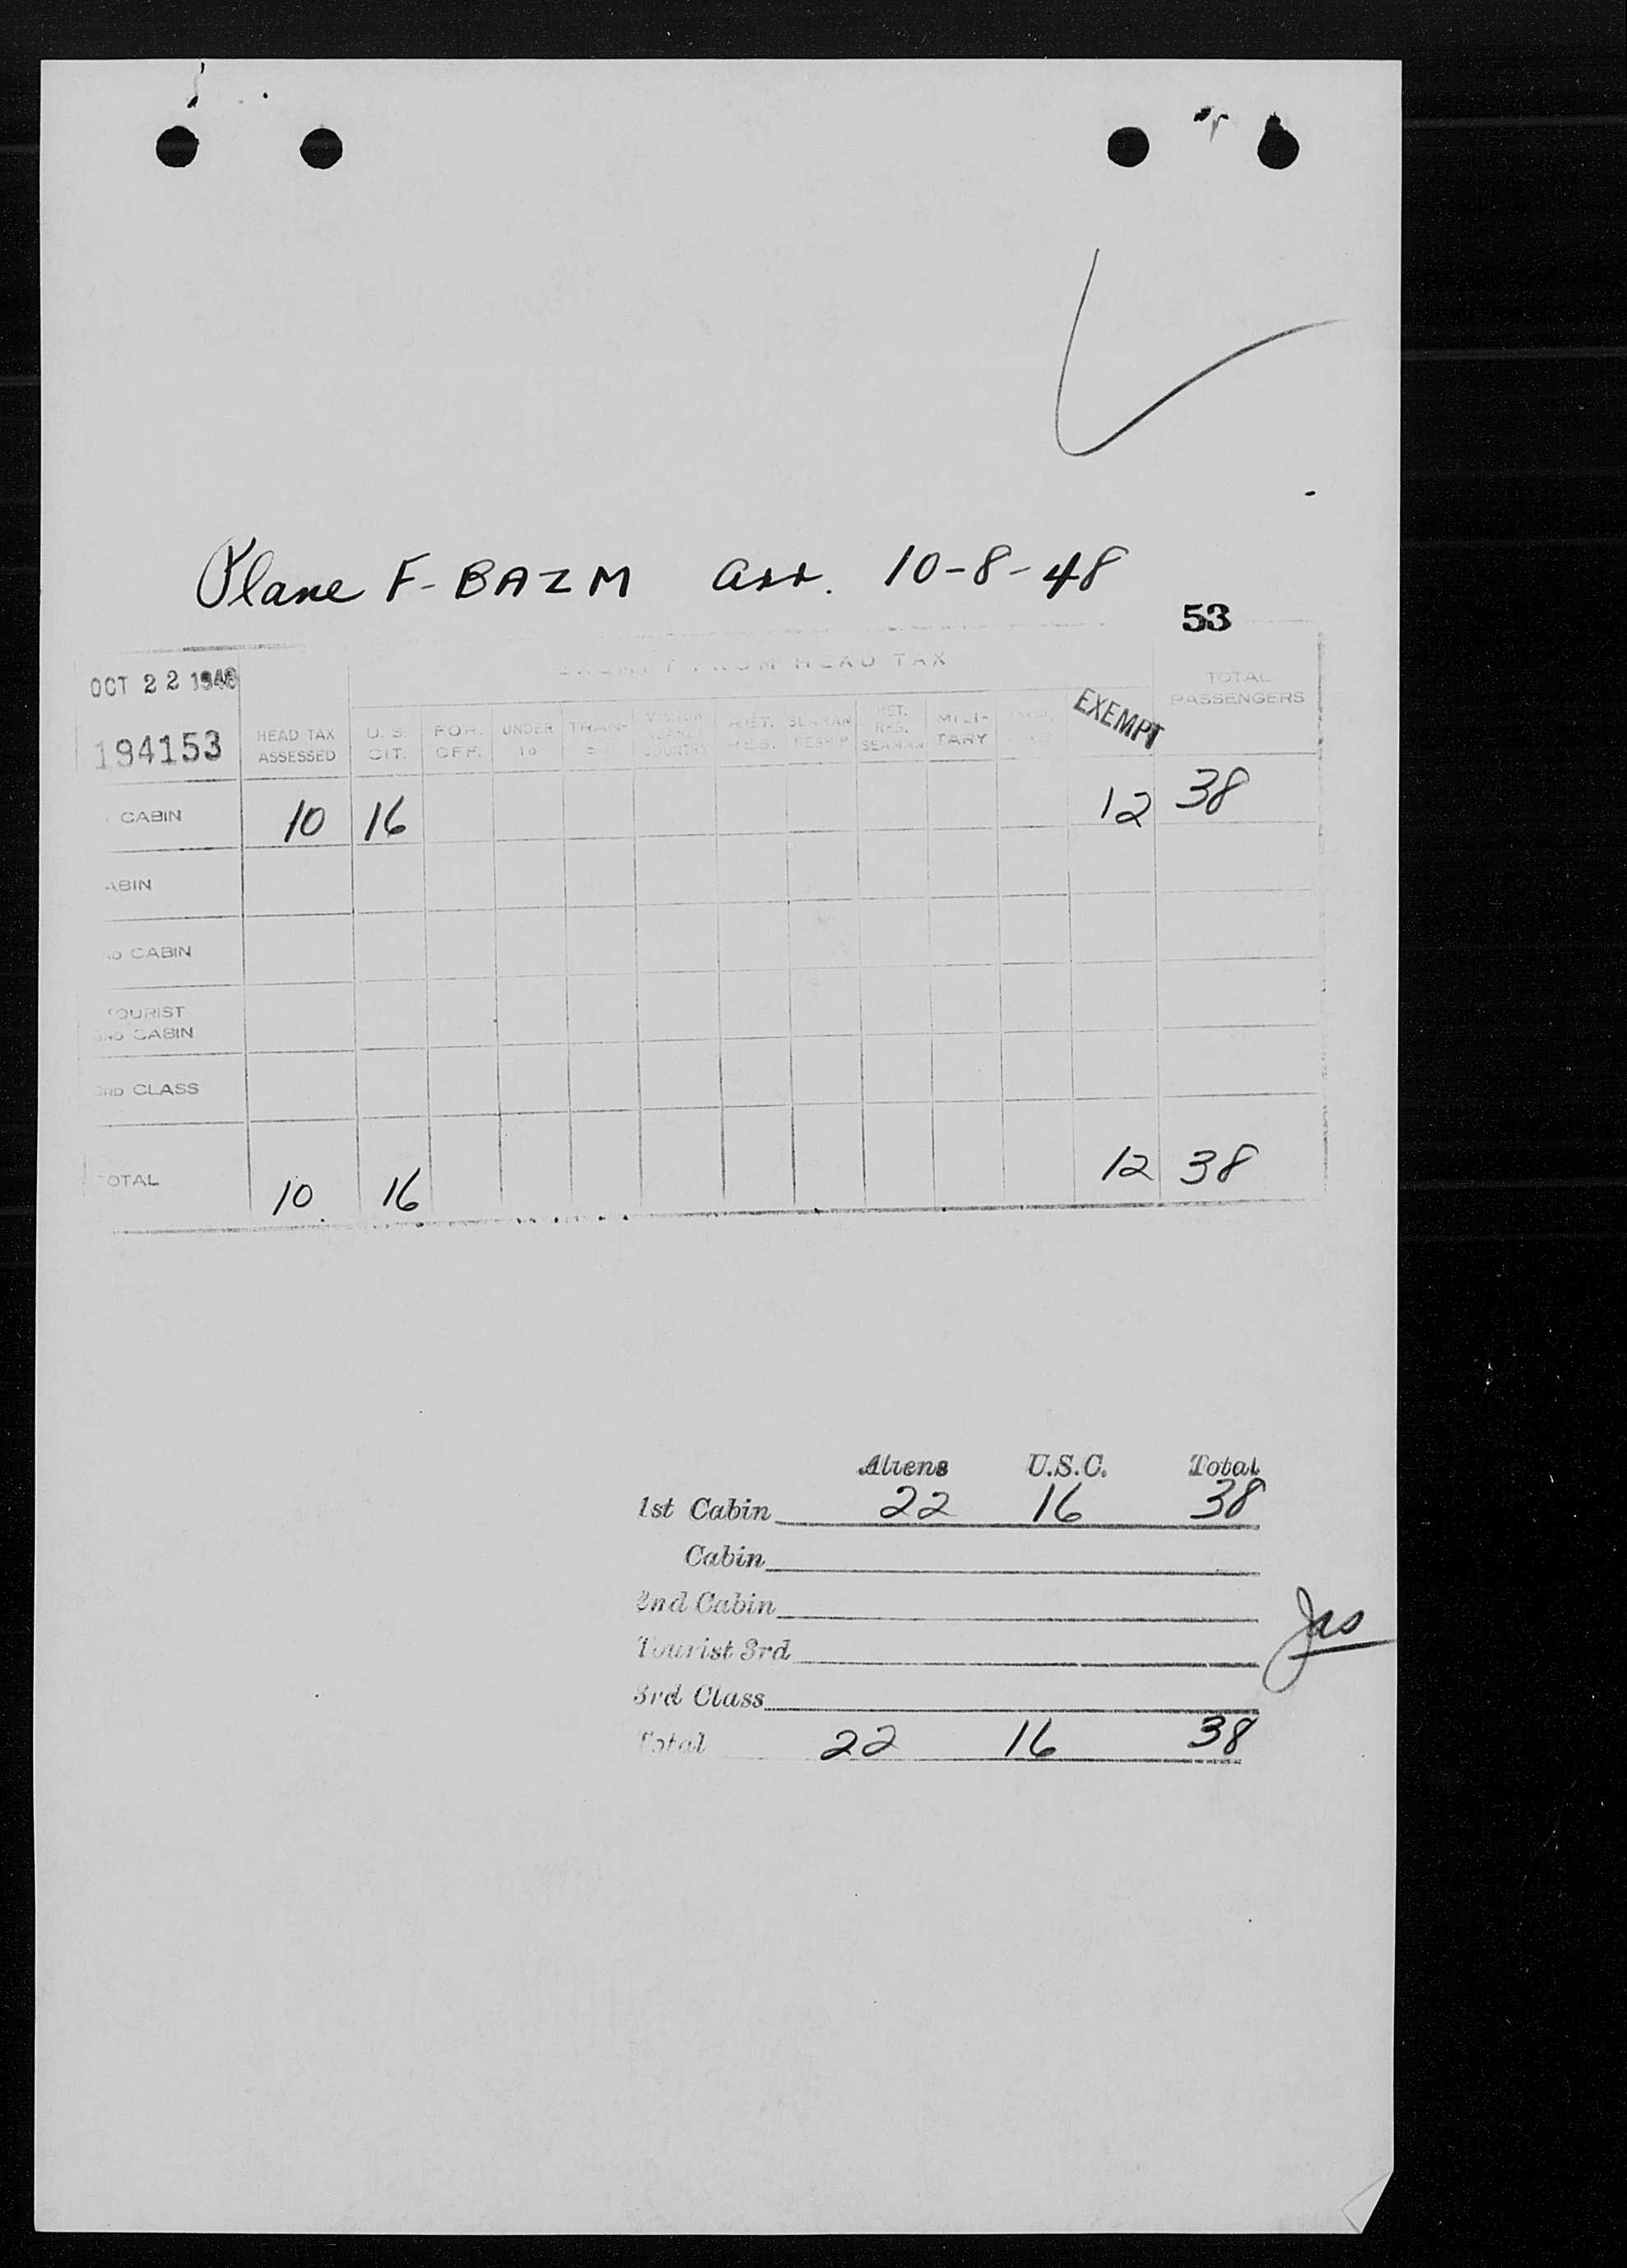 Plane F-BAZM arr. 10-8-48
53
FROM HEAD TAX
OCT 22 1948
TOTAL PASSENGERS
194153
HEAD TAX ASSESSED U. S. CIT. FOR. OFF. UNDER 16 TRAN- VISITOR COUNTRY RES. SEAMAN RET. RES. SEAMAN MILI- TARY EXEMPT
CABIN 10 16 12 38
ABIN
ND CABIN
TOURIST
CABIN
3RD CLASS
OTAL 10. 16 12 38
Aliens U.S.C. Total
1st Cabin 22 16 38
Cabin
2nd Cabin
Tourist 3rd
Jas
3rd Class
Total 22 16 38